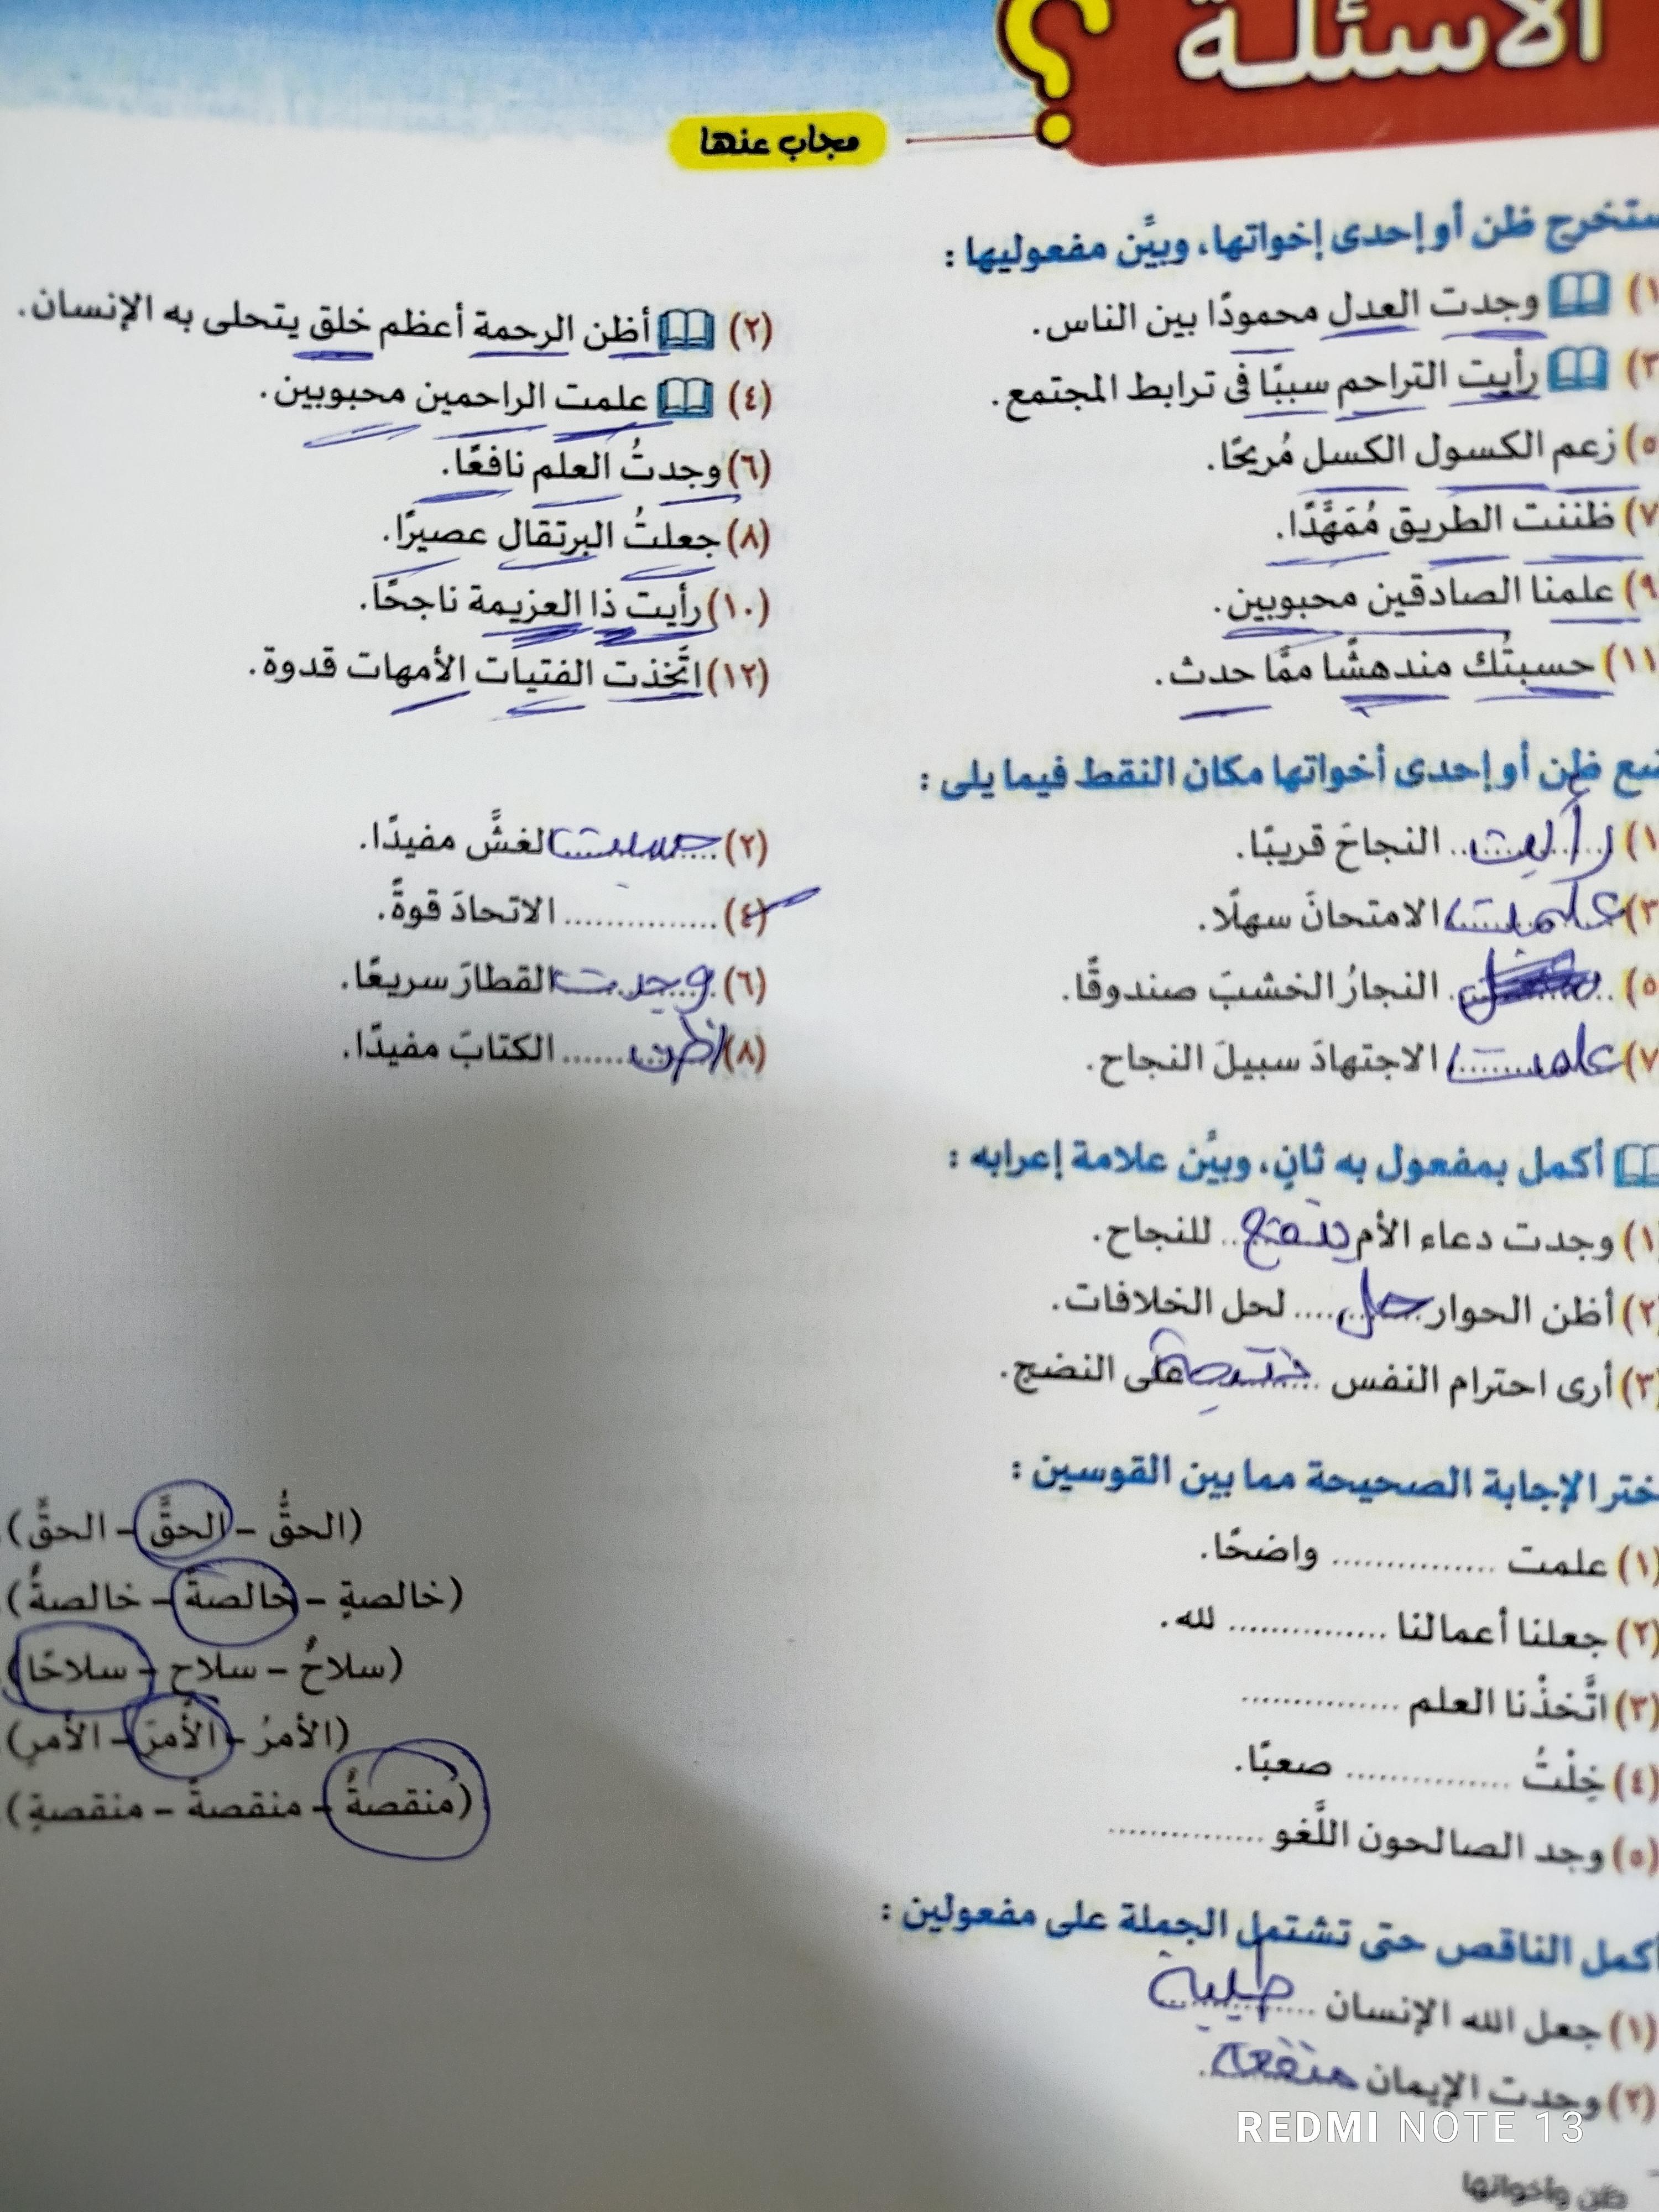 الأسئلة ?
مجاب عنها
ستخرج ظن أو إحدى إخواتها، وبيَّن مفعوليها :
(١) وجدت العدل محمودًا بين الناس.
(٢) أظن الرحمة أعظم خلق يتحلى به الإنسان.
(٣) رأيت التراحم سببًا فى ترابط المجتمع.
(٤) علمت الراحمين محبوبين.
(٥) زعم الكسول الكسل مُريحًا.
(٦) وجدتُ العلم نافعًا.
(٧) ظننت الطريق مُمَهَّدًا.
(٨) جعلتُ البرتقال عصيرًا.
(٩) علمنا الصادقين محبوبين.
(١٠) رأيت ذا العزيمة ناجحًا.
(١١) حسبتُك مندهشًا ممَّا حدث.
(١٢) اتَّخذت الفتيات الأمهات قدوة.
ضع ظن أو إحدى أخواتها مكان النقط فيما يلى :
(١) رأيت النجاحَ قريبًا.
(٢) حسبت الغشَّ مفيدًا.
(٣) علمت الامتحانَ سهلًا.
(٤) ............... الاتحادَ قوةً.
(٥) ............... النجارُ الخشبَ صندوقًا.
(٦) وجدت القطارَ سريعًا.
(٧) علمت الاجتهادَ سبيلَ النجاح.
(٨) اظن الكتابَ مفيدًا.
أكمل بمفعول به ثانٍ، وبيَّن علامة إعرابه :
(١) وجدت دعاء الأم للنجاح.
(٢) أظن الحوار حل لحل الخلافات.
(٣) أرى احترام النفس على النضج.
ختر الإجابة الصحيحة مما بين القوسين :
(١) علمت ............... واضحًا. (الحقُّ – الحقَّ – الحقِّ)
(٢) جعلنا أعمالنا ............... لله. (خالصةٍ – خالصةً – خالصةٌ)
(٣) اتَّخذْنا العلم ............... (سلاحٌ – سلاحٍ – سلاحًا)
(٤) خِلْتُ ............... صعبًا. (الأمرُ – الأمرَ – الأمرِ)
(٥) وجد الصالحون اللَّغو ............... (منقصةٌ – منقصةً – منقصةٍ)
أكمل الناقص حتى تشتمل الجملة على مفعولين :
(١) جعل الله الإنسان طيبة
(٢) وجدت الإيمان منفعة
REDMI NOTE 13
ظن وأخواتها